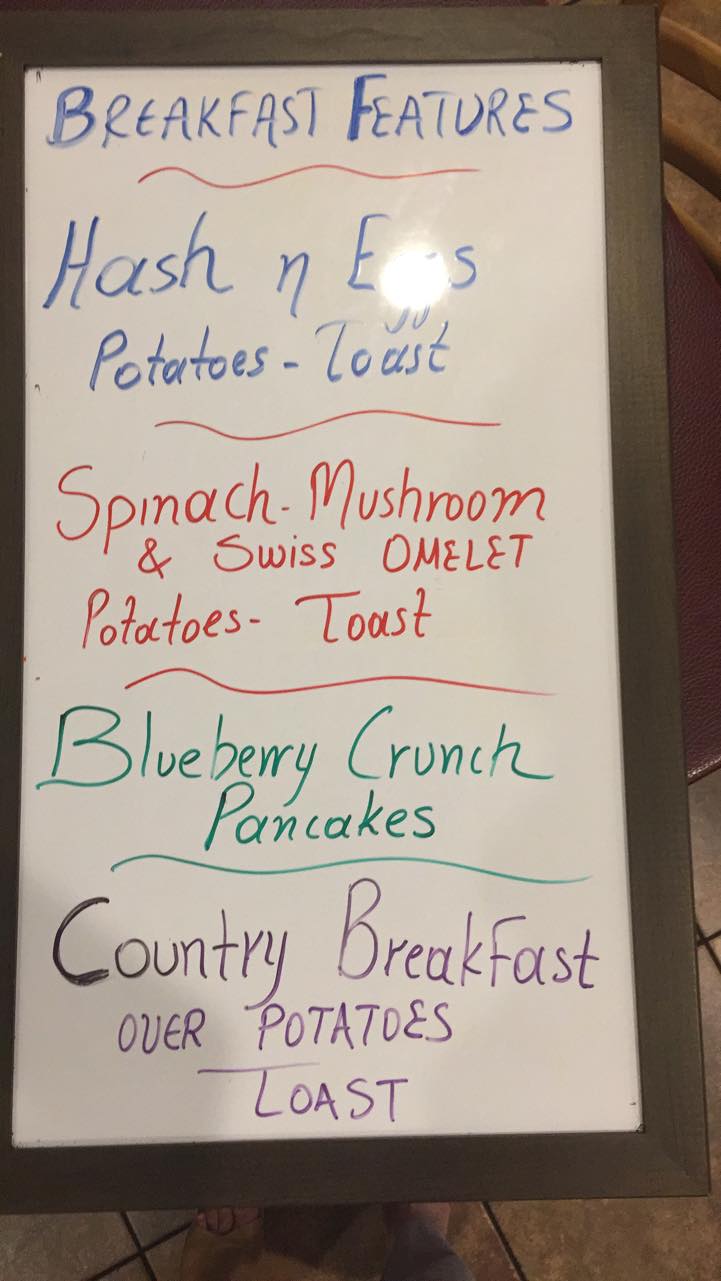 BREAKFAST FEATURES
Hash n Eggs
Potatoes - Toast
Spinach - Mushroom
& Swiss OMELET
Potatoes - Toast
Blueberry Crunch
Pancakes
Country Breakfast
OVER POTATOES
TOAST